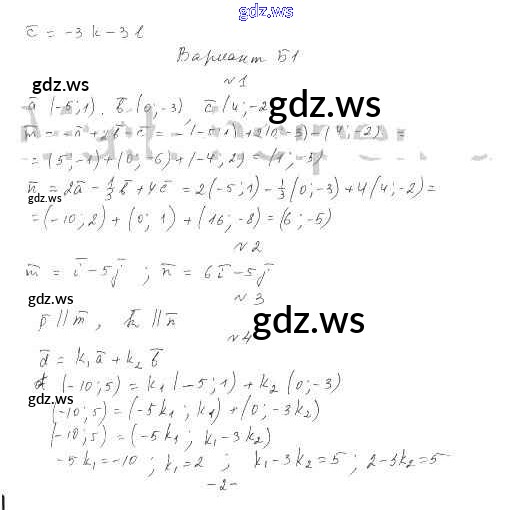 gdz.ws
c̄ = -3k-3l
Вариант Б1
№1
ā (-5;1). b̄ (0;-3) c̄ (4;-2
gdz.ws gdz.ws
m̄ = -ā+2b̄-c̄ = -(-5;1)+2(0;-3)-(4;-2) =
= (5;-1)+(0;-6)+(-4;2) = (1;-5)
n̄ = 2ā - 1/3 b̄ + 4c̄ = 2(-5;1) - 1/3(0;-3)+4(4;-2) =
gdz.ws
= (-10;2) + (0; 1) + (16;-8) = (6;-5)
№2
m̄ = ī-5j̄ ; n̄ = 6ī-5j̄
№3
gdz.ws
p̄ || m̄ , k̄ || n̄
gdz.ws
№4
d̄ = k₁ā + k₂b̄
(-10;5) = k₁(-5;1) + k₂(0;-3)
gdz.ws
(-10;5) = (-5k₁; k₁) + (0;-3k₂)
(-10;5) = (-5k₁; k₁-3k₂)
-5k₁=-10 ; k₁=2 ; k₁-3k₂=5 ; 2-3k₂=5
-2-
gdz.ws